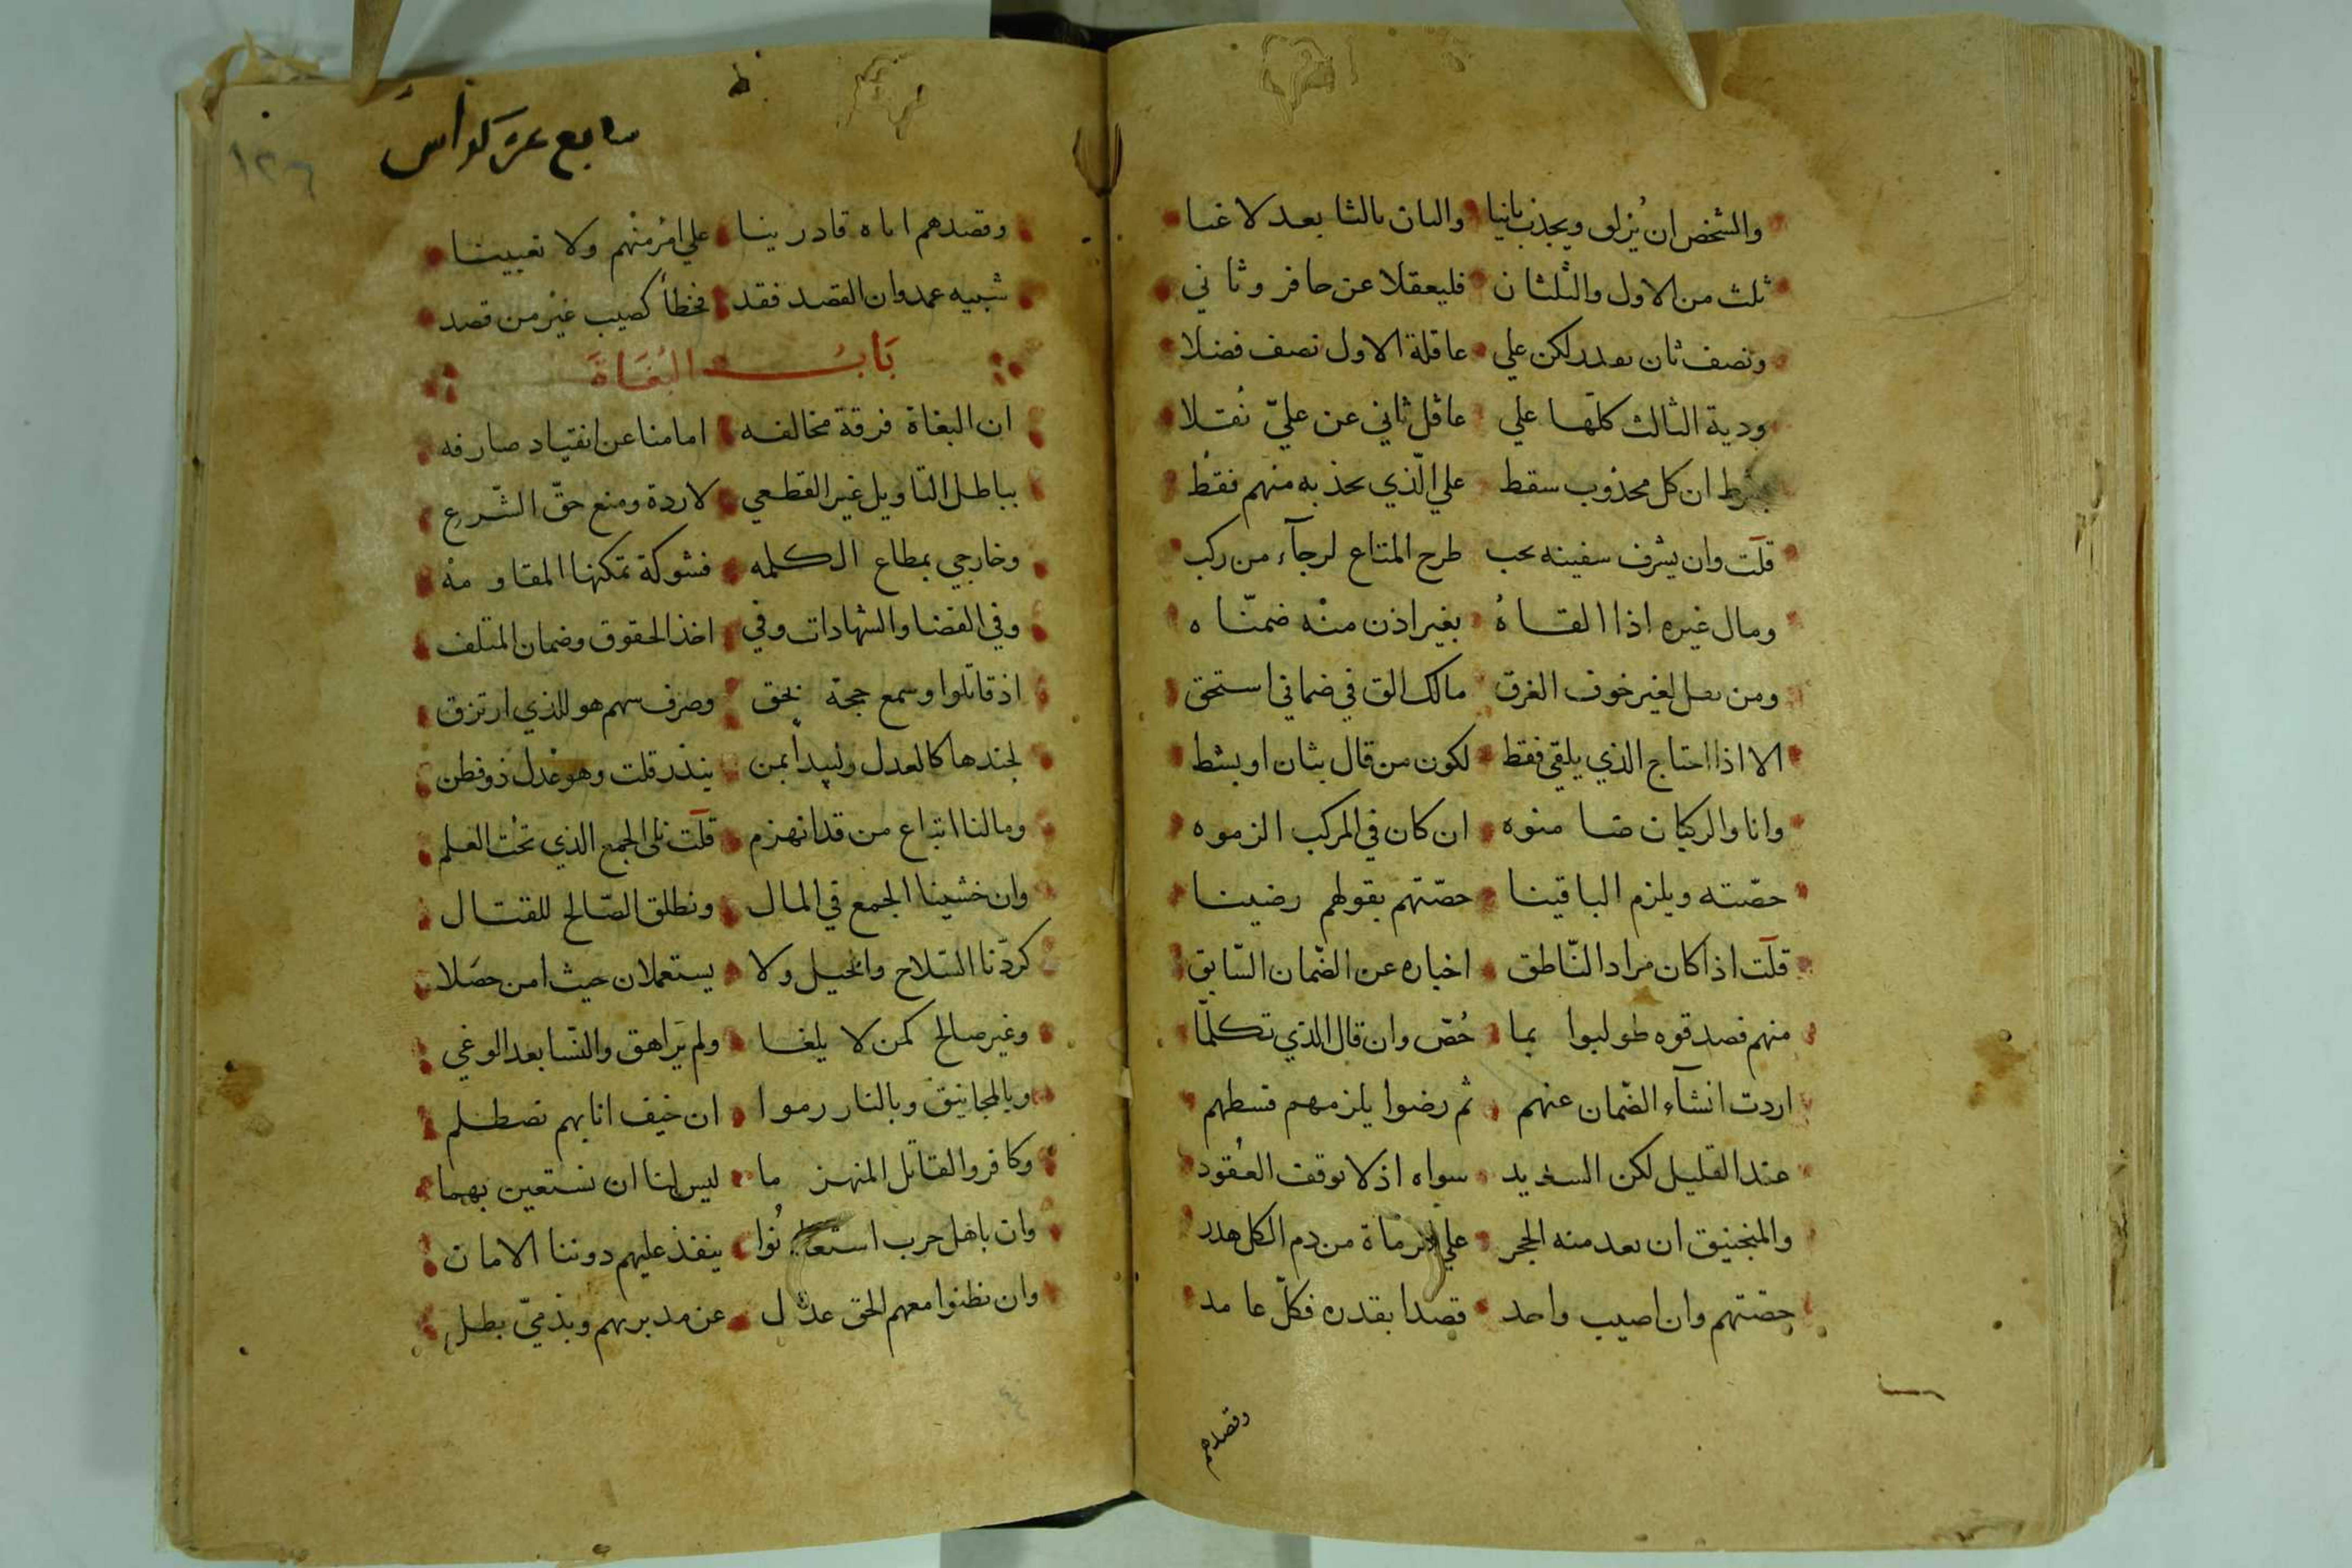 والشخص ان يزلق ويجذب ثانيا والثان ثالثا بعد لا غبا
ثلث من الاول والثلثان فليعقلا عن حافر وثاني
ونصف ثان يهدر لكن علي عاقلة الاول نصف فضلا
ودية الثالث كلها علي عاقل ثاني عن عليّ نقلا
بشرط ان كل مجذوب سقط علي الّذي يجذبه منهم فقط
قلت وان يشرف سفينه يجب طرح المتاع لرجآء من ركب
ومال غيره اذا القاهُ بغير اذن منه ضمنّاه
ومن يقل لغير خوف الغرق مالك الق في ضماني استحق
الا اذا احتاج الذي يلقي فقط لكون من قال بثان او بشط
وانا والركبان ضامنوه ان كان في المركب الزموه
حصّته ويلزم الباقينا حصّتهم بقولهم رضينا
قلت اذا كان مراد النّاطق اخباره عن الضّمان السّابق
منهم فصدقوه طولبوا بما خُصّ وان قال الذي تكلّما
اردت انشآء الضّمان عنهم ثم رضوا يلزمهم قسطهم
عند القليل لكن السديد سواه اذ لا توقف العُقود
والمنجنيق ان يعد منه الحجر علي الرماة من دم الكل هدر
حصّتهم وان اصيب واحد قصدا بقدره فكلّ عامد
وقصدهم
سابع عشر كراس
١٢٦
وقصدهم اياه قادرينا علي امرٔ منهم ولا تعيينا
شبيه عمد وان القصد فقد فخطأ كصيب غير من قصد
بَابُ البُغَاةَ
ان البغاة فرقة مخالفه امامنا عن انقياد صارفه
بباطل التاويل غير القطعي لا ردة ومنع حقّ الشّرع
وخارجي بمطاع الكلمه فشوكة تمكنها المقاومه
وفي القضا والشهادات وفي اخذ الحقوق وضمان المتلف
اذ قاتلوا وسمع حجة بحق وصرف سهم هو للذي ارتزق
لجندها كالعدل وليبدأ بمن ينذر قلت وهو عدل ذو فطن
وما لنا اتباع من قد انهزم قلت بلي الجمع الذي تحت العلم
وان خشينا الجمع في المال ونطلق الصّالح للقتال
كردّنا السّلاح والخيل ولا يستعملان حيث امن حصّلا
وغير صالح كمن لا يلغا ولم يَراهق والنّسا بعد الوغي
وبالمجانيق وبالنار رموا ان خيف انا بهم نصطلم
وكافر والقاتل المنهزما ليس لنا ان نستعين بهما
وان باهل حرب استعانُوا ينفذ عليهم دوننا الامان
وان يظنوا معهم الحق عدل عن مدبريهم وبذميّ بطل